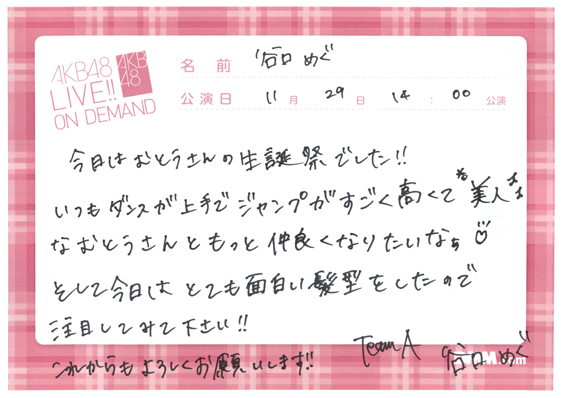 AKB48
LIVE!!
ON DEMAND
AKB
48
名前 谷口 めぐ
公演日 11月 29日 14:00公演
今日はおとうさんの生誕祭でした!!
いつもダンスが上手でジャンプがすごく高くて美人
なおとうさんともっと仲良くなりたいなぁ
そして今日はとても面白い髪型をしたので
注目してみて下さい!!
これからもよろしくお願いします!!
TeamA 谷口 めぐ
.com